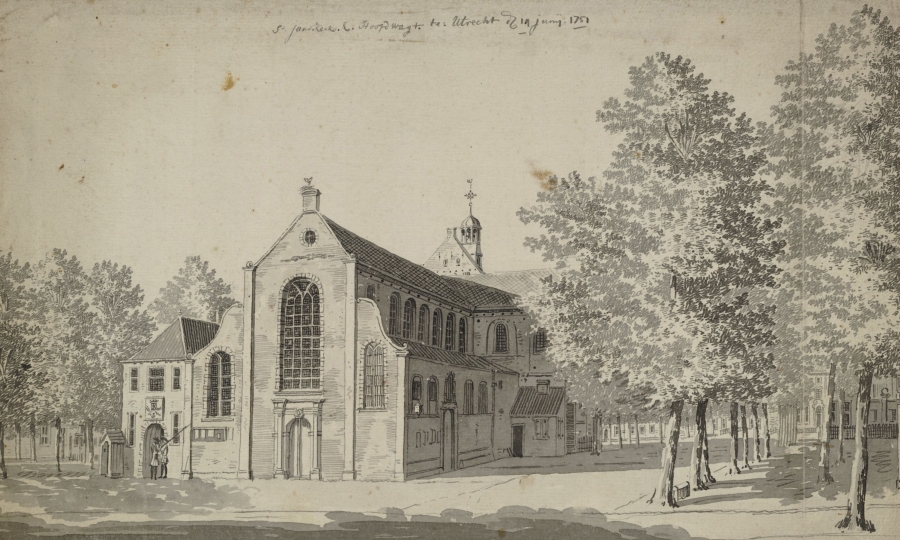 St. Janskerk. &. Hoofdwagt. te: Utrecht d 19 junij. 1751